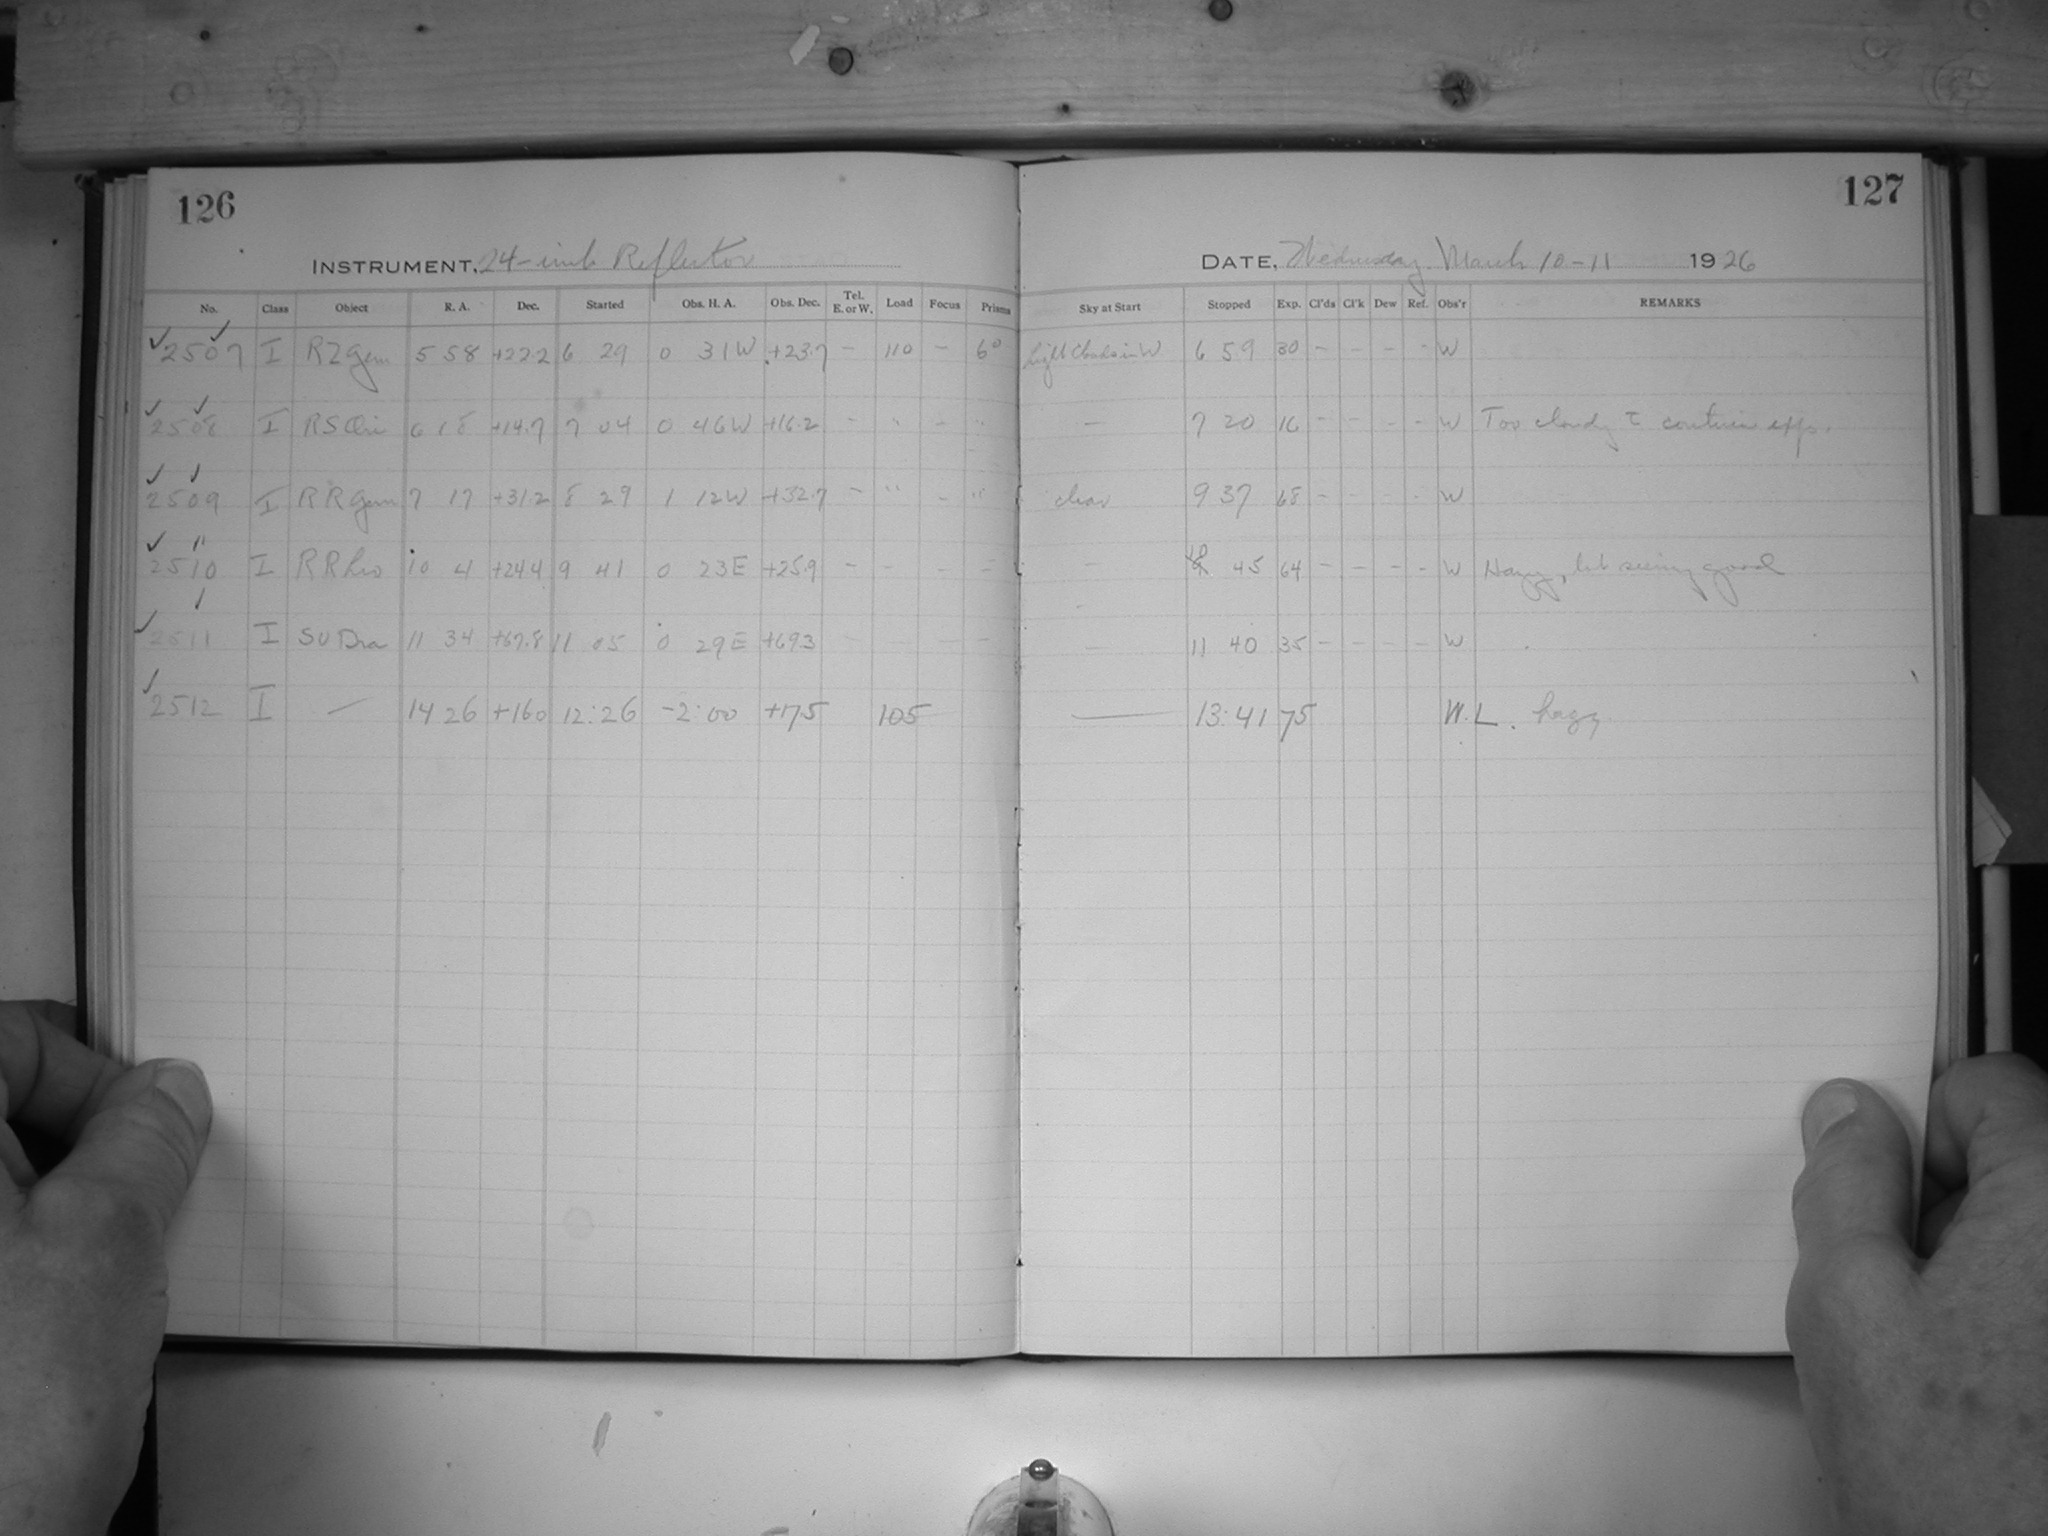 126
127
INSTRUMENT, 24-inch Reflector
DATE, Wednesday March 10-11 1926
No. Class Object R. A. Dec. Started Obs. H. A. Obs. Dec. Tel. E. or W. Load Focus Prisms Sky at Start Stopped Exp. Cl'ds Cl'k Dew Ref. Obs'r REMARKS
2507 I RZ Gem 5 58 +22.2 6 29 0 31W +23.7 - 110 - 6° light clouds in W 6 59 30 - - - - W
2508 I RS Ori 6 18 +14.7 7 04 0 46W +16.2 - " - " — 7 20 16 - - - - W Too cloudy to continue exp.
2509 I RR Gem 7 17 +31.2 8 29 1 12W +32.7 - " - " clear 9 37 68 - - - - W
2510 I RR Leo 10 4 +24.4 9 41 0 23E +25.9 - - - - — 45 64 - - - - W Hazy, but seeing good
2511 I SU Dra 11 34 +67.8 11 05 0 29E +69.3 - - - - — 11 40 35 - - - - W
2512 I — 14 26 +16.0 12:26 -2:00 +17.5 105 — 13:41 75 W.L. hazy